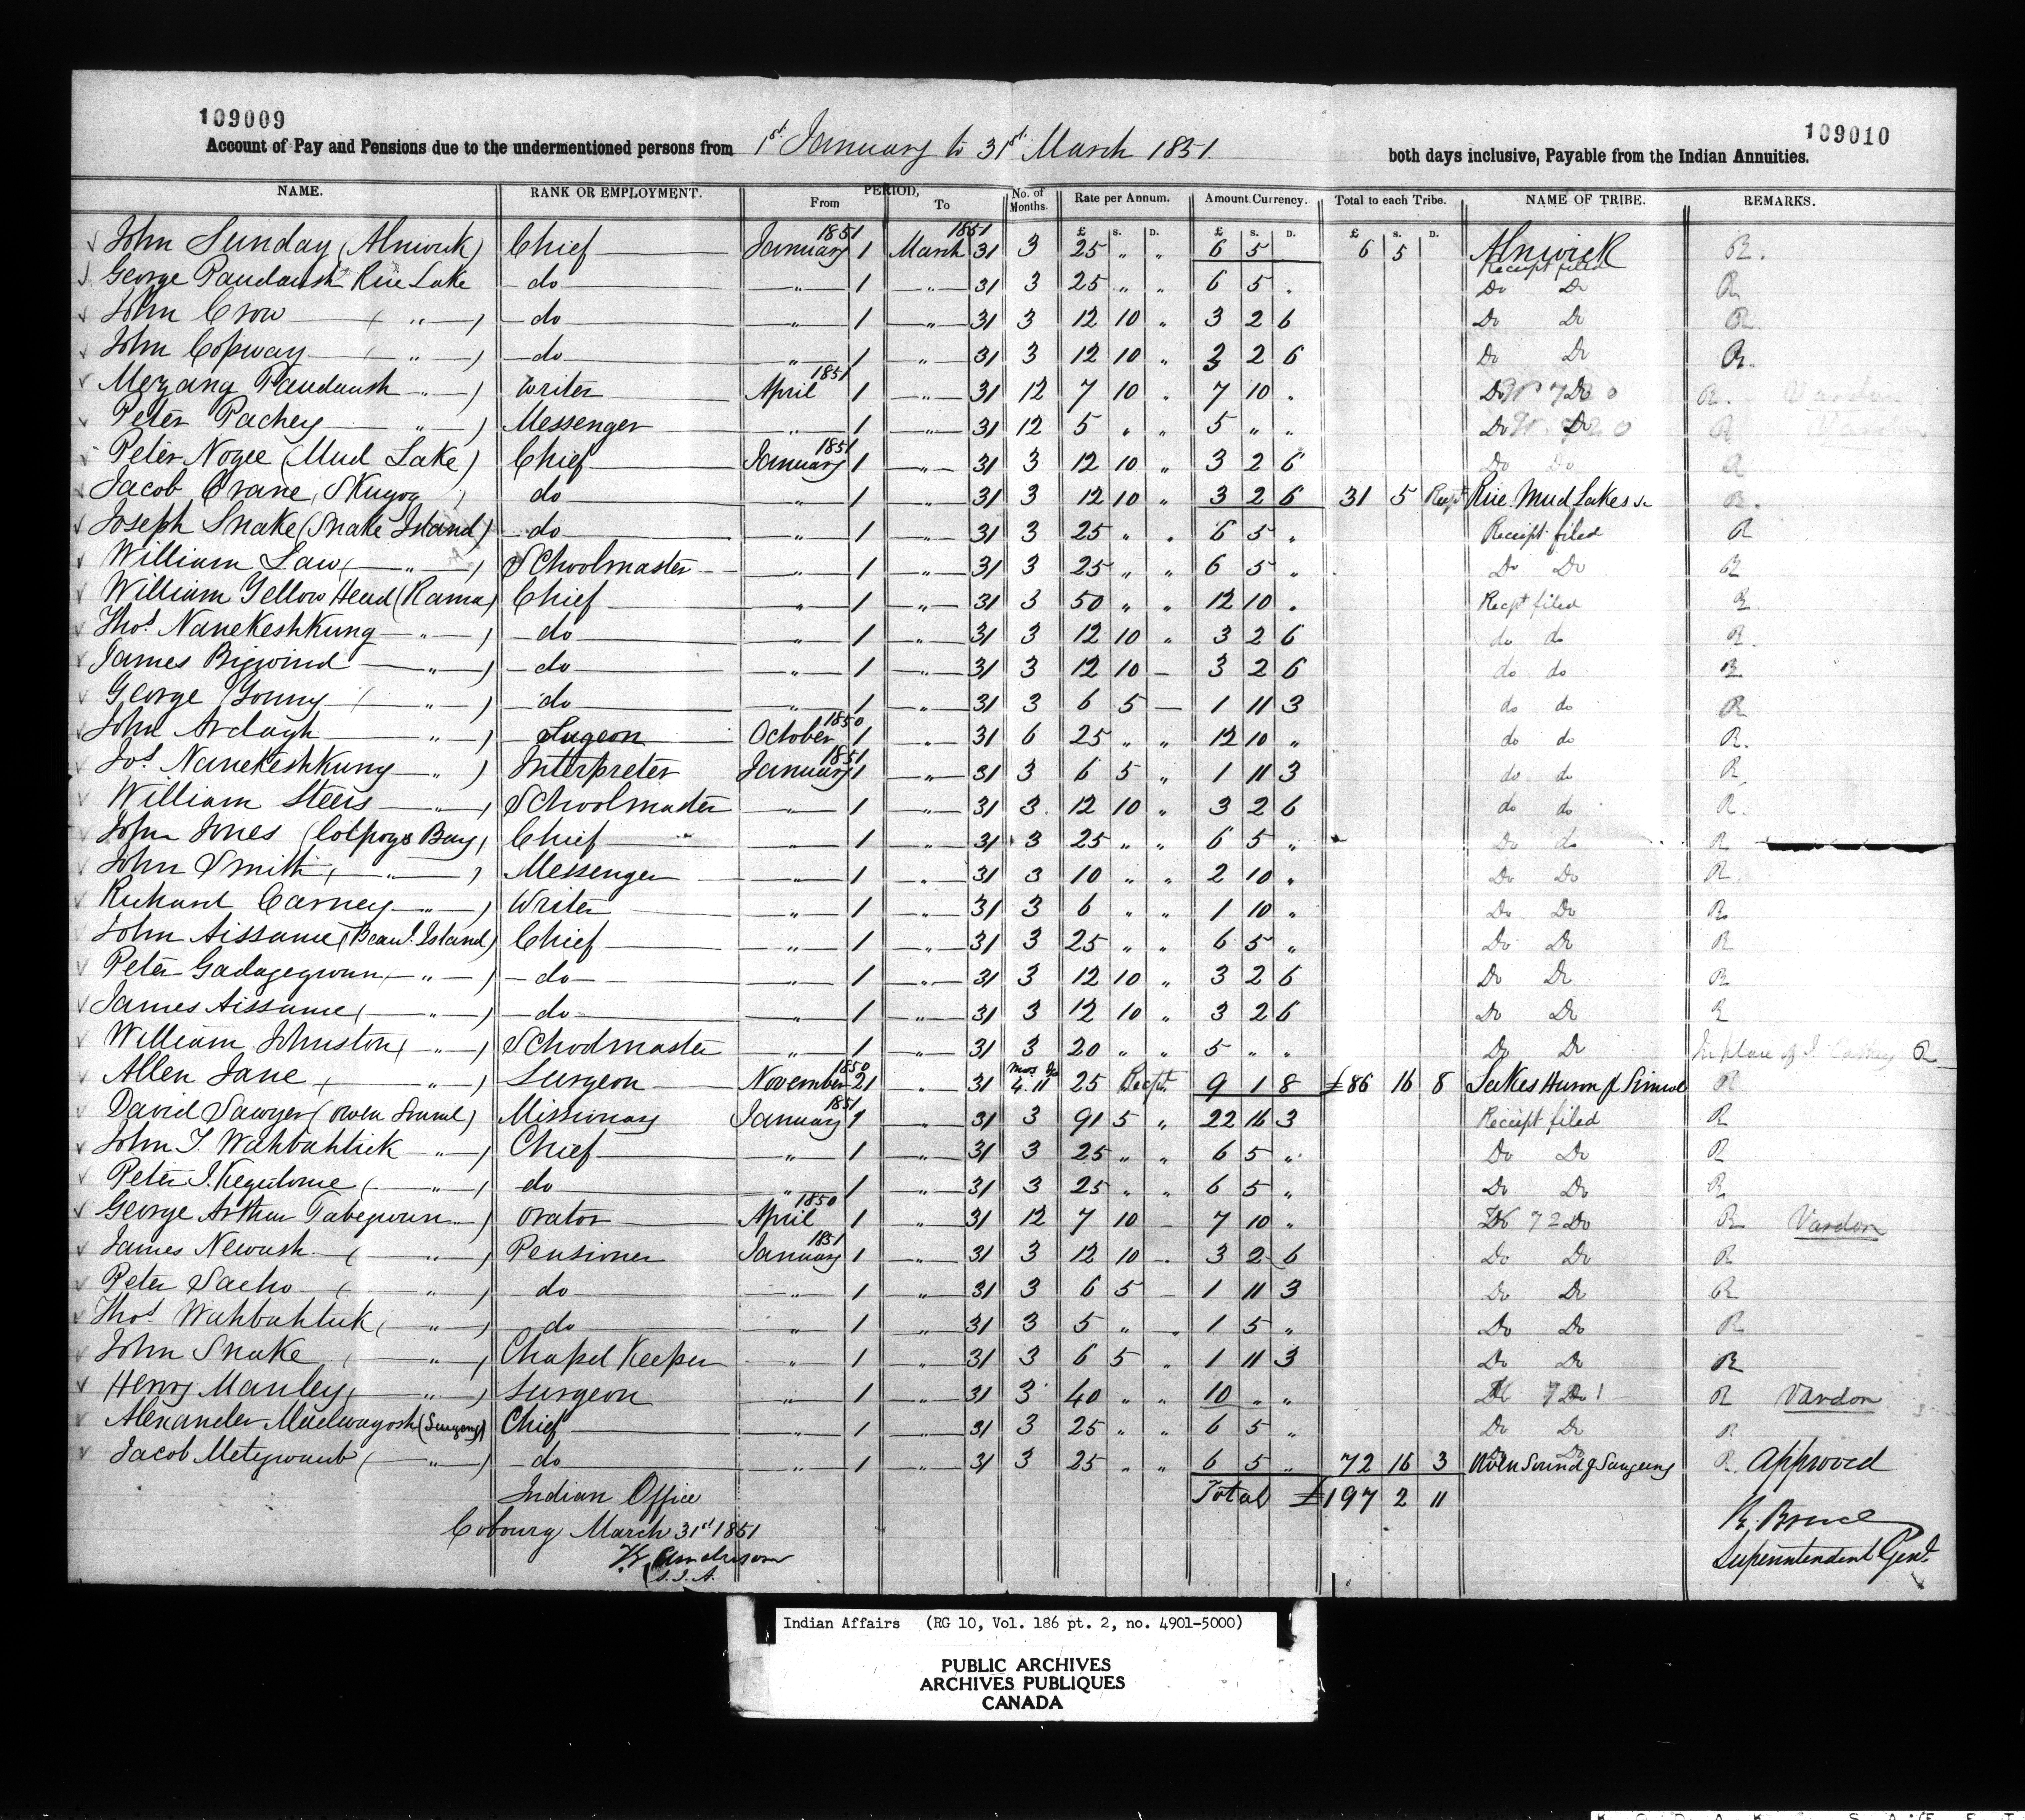 109009
109010
Account of Pay and Pensions due to the undermentioned persons from 1st January to 31st March 1851. both days inclusive, Payable from the Indian Annuities.
NAME. RANK OR EMPLOYMENT. PERIOD, From To No. of Months. Rate per Annum. Amount Currency. Total to each Tribe. NAME OF TRIBE. REMARKS.
£ s. D. £ s. D. £ s. D.
John Sunday (Alnwick) Chief 1851 January 1 1851 March 31 3 25 " " 6 5 6 5 Alnwick R.
George Paudaush Rice Lake do " 1 " 31 3 25 " " 6 5 " Receipt filed Do Do R
John Crow ( " ) do " 1 " 31 3 12 10 " 3 2 6 Do Do R
John Copway ( " ) do " 1 " 31 3 12 10 " 3 2 6 Do Do R.
Mezang Paudaush " ) writer 1851 April 1 " 31 12 7 10 " 7 10 " Do Do R. Vardon
Peter Pachey " ) Messenger " 1 " 31 12 5 " " 5 " " Do Do R Vardon
Peter Nogee (Mud Lake) Chief 1851 January 1 " 31 3 12 10 " 3 2 6 Do Do R
Jacob Crane, Skugog ) do " 1 " 31 3 12 10 " 3 2 6 31 5 Recpt Rice Mud Lakes &c R.
Joseph Snake (Snake Island) do " 1 " 31 3 25 " " 6 5 " Receipt filed R
William Law ( " ) Schoolmaster " 1 " 31 3 25 " " 6 5 " Do Do R
William Yellow Head (Rama) Chief " 1 " 31 3 50 " " 12 10 " Recpt filed R
Thos. Nanekeshkung " ) do " 1 " 31 3 12 10 " 3 2 6 do do R.
James Bigwind " ) do " 1 " 31 3 12 10 — 3 2 6 do do R
George Young ( " ) do " 1 " 31 3 6 5 — 1 11 3 do do R
John Ardagh " ) Sugeon 1850 October 1 " 31 6 25 " " 12 10 " do do R.
Jos. Nanekeshkung " ) Interpreter 1851 January 1 " 31 3 6 5 " 1 11 3 do do R
William Steers " ) Schoolmaster " 1 " 31 3 12 10 " 3 2 6 do do R.
John Jones (Colpoys Bay) Chief " 1 " 31 3 25 " " 6 5 " Do do R
John Smith ( " ) Messenger " 1 " 31 3 10 " " 2 10 " Do Do R.
Richard Carney " ) Writer " 1 " 31 3 6 " " 1 10 " Do Do R
John Aissance (Beau. Island) Chief " 1 " 31 3 25 " " 6 5 " Do Do R
Peter Gadagegwun " ) do " 1 " 31 3 12 10 " 3 2 6 Do Do R
James Aissance ( " ) do " 1 " 31 3 12 10 " 3 2 6 Do Do R
William Johnston ( " ) Schoolmaster " 1 " 31 3 20 " " 5 " " Do Do In place of J. R
Allen Jane ( " ) Surgeon 1850 November 21 " 31 4. 11 25 Recpt 9 1 8 £86 16 8 Lakes Huron & Simcoe R
David Sawyer (Owen Sound) Missionary 1851 January 1 " 31 3 91 5 " 22 16 3 Receipt filed R
John T. Wahbahtick " ) Chief " 1 " 31 3 25 " " 6 5 " Do Do R
Peter J. Kegedonce ( " ) do " 1 " 31 3 25 " " 6 5 " Do Do R
George Arthur Tabegwun " ) orator 1850 April 1 " 31 12 7 10 — 7 10 " Do R Vardon
James Newash ( " ) Pensioner 1851 January 1 " 31 3 12 10 — 3 2 6 Do Do R
Peter Sacho ( " ) do " 1 " 31 3 6 5 — 1 11 3 Do Do R
Thos. Wahbahtick ( " ) do " 1 " 31 3 5 " " 1 5 " Do Do R
John Snake ( " ) Chapel Keeper " 1 " 31 3 6 5 " 1 11 3 Do Do R
Henry Manley ( " ) Surgeon " 1 " 31 3 40 " " 10 " " Do R Vardon
Alexander Madwayosh (Saugeeng) Chief " 1 " 31 3 25 " " 6 5 " Do Do R
Jacob Metigwaub ( " ) do " 1 " 31 3 25 " " 6 5 " 72 16 3 Owen Sound & Saugeeng R. Approved
Indian Office Total £197 2 11
Cobourg March 31st 1851 R. Bruce
T.G. Anderson Superintendent Genl.
S.I.A.
Indian Affairs (RG 10, Vol. 186 pt. 2, no. 4901-5000)
PUBLIC ARCHIVES
ARCHIVES PUBLIQUES
CANADA